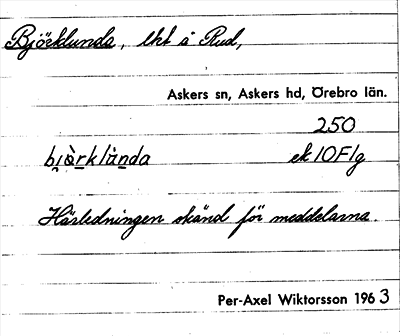 Björklunda, lht å Rud,
Askers sn, Askers hd, Örebro län.
250
bi̯ò̱rklà̱nda ek 10F1g
Härledningen okänd för meddelarna.
Per-Axel Wiktorsson 1963